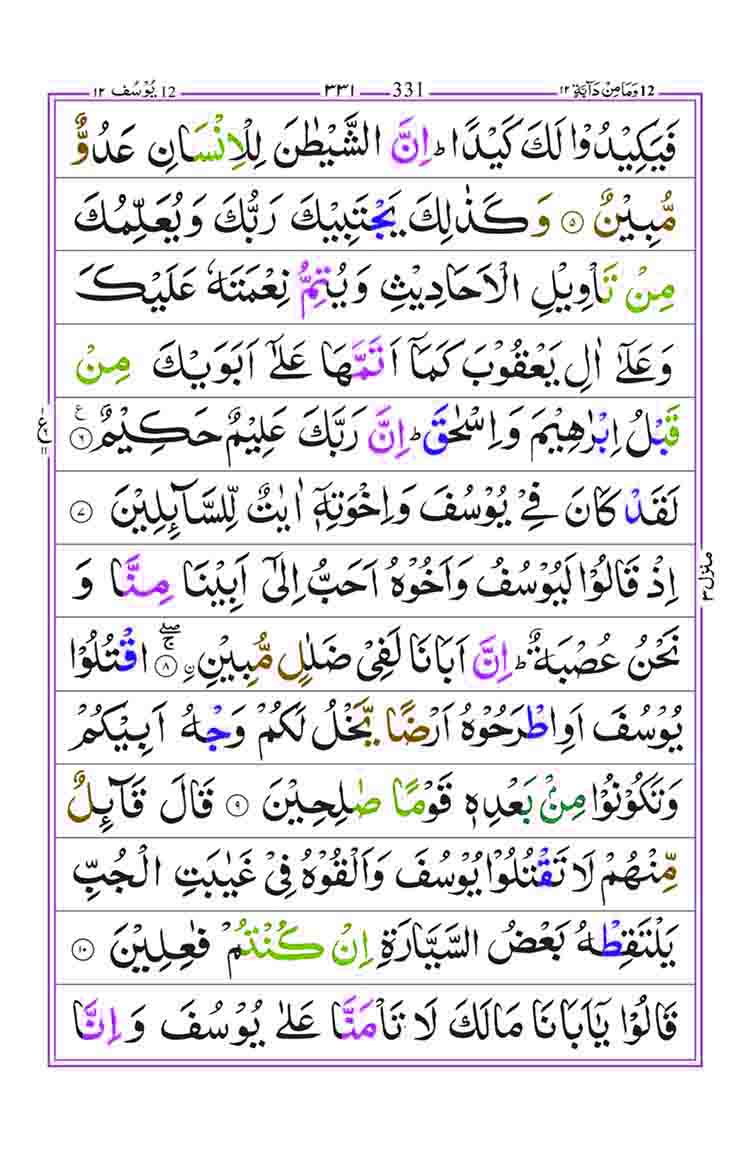 12 وَمَا مِنْ دَآبَّةٍ ١٢ 331 ٣٣١ 12 يُوْسُف ١٢
فَيَكِيْدُوْا لَكَ كَيْدًا ؕ اِنَّ الشَّيْطٰنَ لِلْاِنْسَانِ عَدُوٌّ
مُّبِيْنٌ ۝۵ وَ كَذٰلِكَ يَجْتَبِيْكَ رَبُّكَ وَ يُعَلِّمُكَ
مِنْ تَاْوِيْلِ الْاَحَادِيْثِ وَ يُتِمُّ نِعْمَتَهٗ عَلَيْكَ
وَ عَلٰۤى اٰلِ يَعْقُوْبَ كَمَاۤ اَتَمَّهَا عَلٰۤى اَبَوَيْكَ مِنْ
قَبْلُ اِبْرٰهِيْمَ وَ اِسْحٰقَ ؕ اِنَّ رَبَّكَ عَلِيْمٌ حَكِيْمٌ ۝۶ ع
لَقَدْ كَانَ فِيْ يُوْسُفَ وَ اِخْوَتِهٖۤ اٰيٰتٌ لِّلسَّآئِلِيْنَ ۝۷
اِذْ قَالُوْا لَيُوْسُفُ وَ اَخُوْهُ اَحَبُّ اِلٰۤى اَبِيْنَا مِنَّا وَ
نَحْنُ عُصْبَةٌ ؕ اِنَّ اَبَانَا لَفِيْ ضَلٰلٍ مُّبِيْنِ ۝۸ اقْتُلُوْا
يُوْسُفَ اَوِ اطْرَحُوْهُ اَرْضًا يَّخْلُ لَكُمْ وَجْهُ اَبِيْكُمْ
وَ تَكُوْنُوْا مِنْ بَعْدِهٖ قَوْمًا صٰلِحِيْنَ ۝۹ قَالَ قَآئِلٌ
مِّنْهُمْ لَا تَقْتُلُوْا يُوْسُفَ وَ اَلْقُوْهُ فِيْ غَيٰبَتِ الْجُبِّ
يَلْتَقِطْهُ بَعْضُ السَّيَّارَةِ اِنْ كُنْتُمْ فٰعِلِيْنَ ۝۱۰
قَالُوْا يٰۤاَبَانَا مَا لَكَ لَا تَاْمَنَّا عَلٰى يُوْسُفَ وَ اِنَّا
منزل ٣